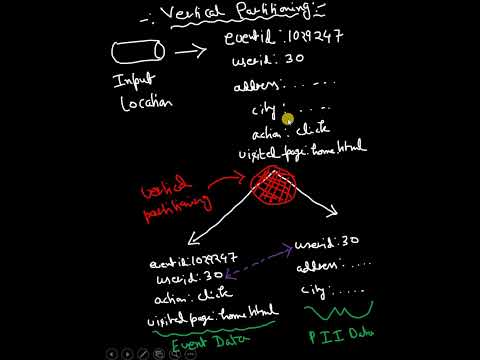 -: Vertical Partitioning:-
eventid:1029247
userid: 30
address: ... - ...
city: . ...
action: click
visited page:home.html
Input
Location
vertical
partitioning
eventid:1029247
userid:30
action: click
visited page:home.html
Event Data
userid:30
address: .....
city: .....
PII Data